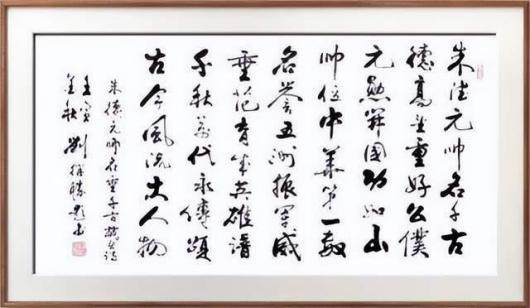 朱德元帅名千古
德高望重好公僕
元勋開國功如山
帅位中華第一数
名誉五洲振军威
垂范育英雄谱
千秋万代永傳颂
古今风流大人物
朱德元帅名垂千古藏头诗
壬寅
金秋 劉